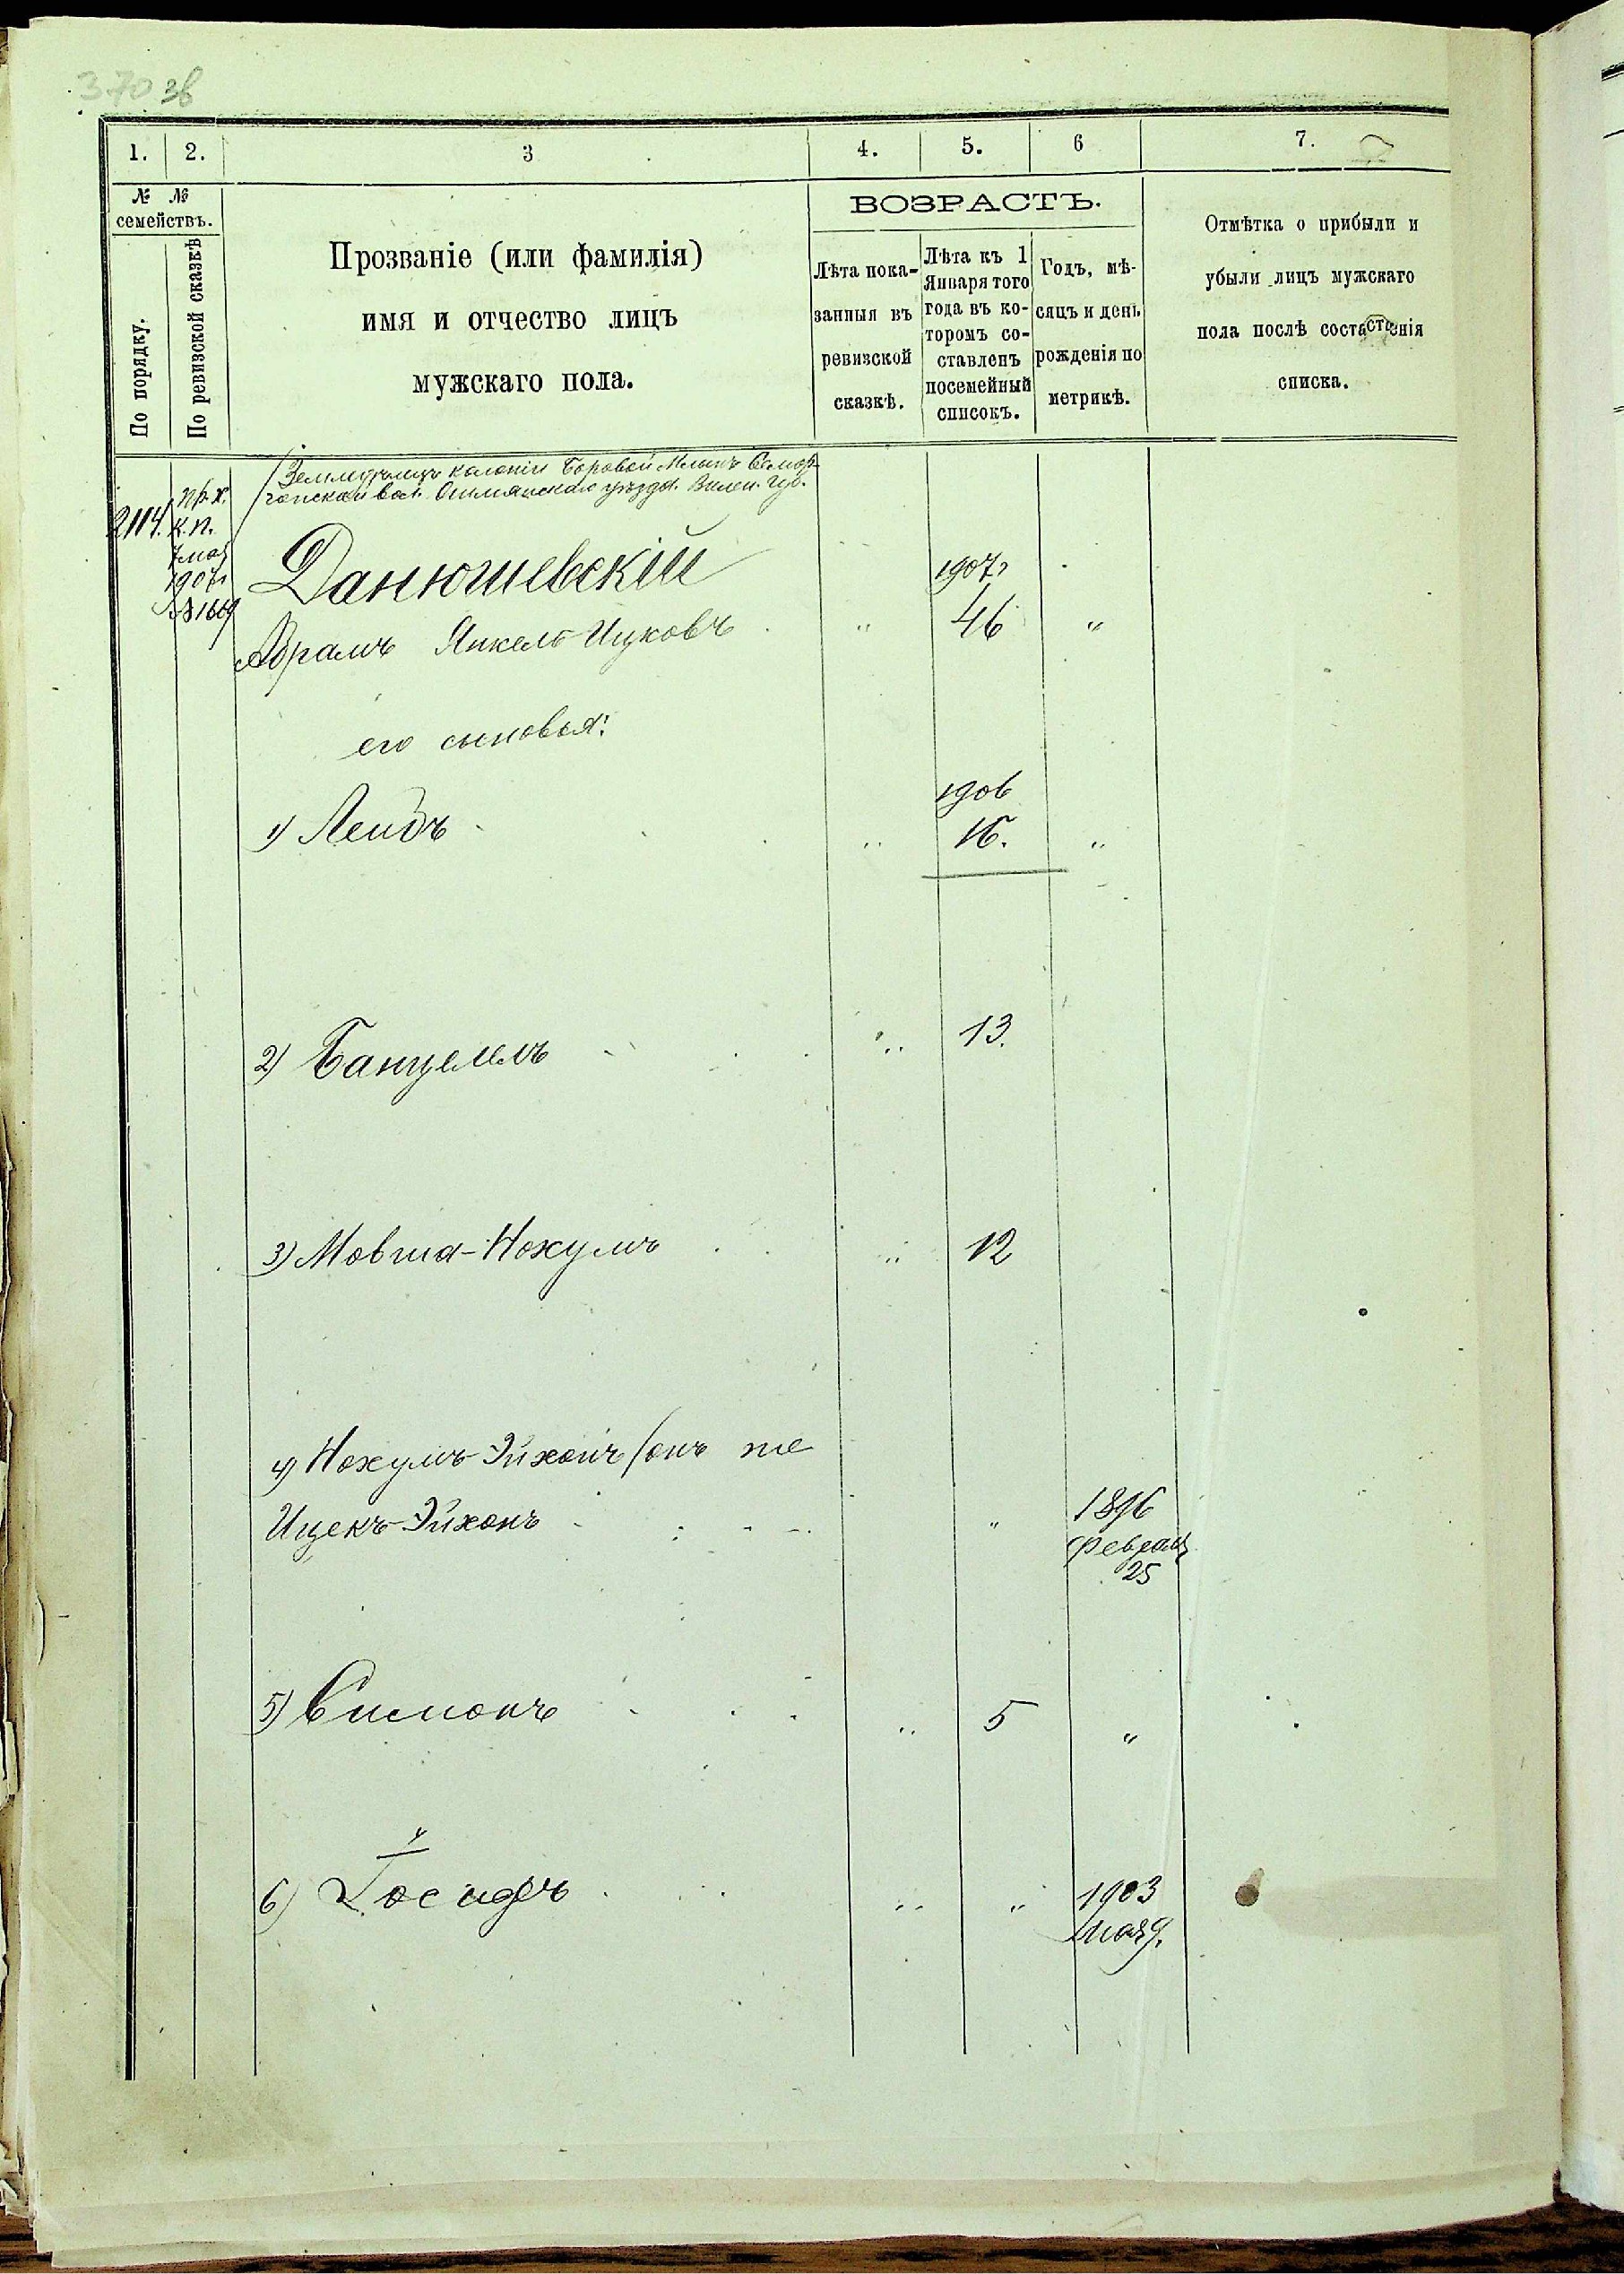 370 зв
1. 2. 3 4. 5. 6 7.
№ №
семействъ.
По порядку.
По ревизской сказкѣ
Прозваніе (или фамилія)
имя и отчество лицъ
мужскаго пола.
ВОЗРАСТЪ.
Лѣта пока-
занныя въ
ревизской
сказкѣ.
Лѣта къ 1
Января того
года въ ко-
торомъ со-
ставленъ
посемейный
списокъ.
Годъ, мѣ-
сяцъ и день
рожденія по
метрикѣ.
Отмѣтка о прибыли и
убыли лицъ мужскаго
пола послѣ
списка.
Земледѣлецъ колоніи Боровой Млынъ Смор-
гонской вол. Ошмянскаго уѣзда. Вилен. Губ.
2114. пр. х.
к. п.
7 мая
1907 г
№ 1669
Данюшевскій 1907 г
Абрамъ Янкель Ицковъ " 46 "
его сыновья:
1906
1) Лейбъ " 16. "
2) Банцемъ " 13.
3) Мовша-Нохумъ " 12
4) Нохумъ-Эйхонъ (онъ же
Ицекъ-Эйхонъ " 1896
Февраля
25
5) Симонъ " 5 "
6) Іосифъ " " 1903
мая 9.